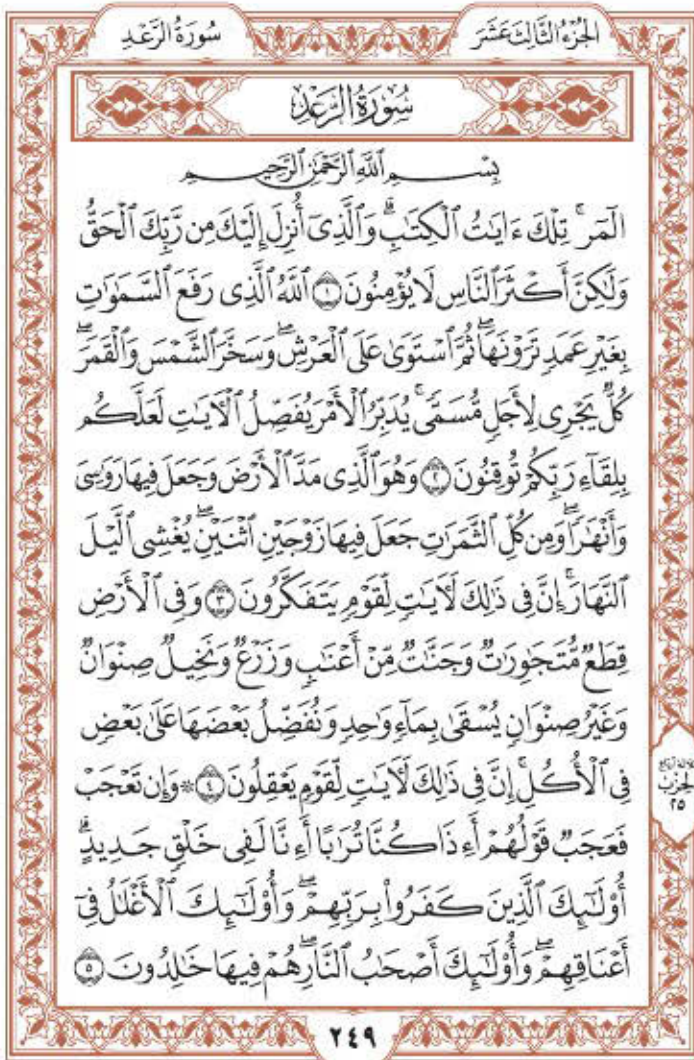 سُورَةُ الرَّعْدِ
الجُزْءُ الثَّالِثَ عَشَرَ
سُورَةُ الرَّعْدِ
بِسْمِ ٱللَّهِ ٱلرَّحْمَٰنِ ٱلرَّحِيمِ
الٓمٓرۚ تِلْكَ ءَايَٰتُ ٱلْكِتَٰبِۗ وَٱلَّذِىٓ أُنزِلَ إِلَيْكَ مِن رَّبِّكَ ٱلْحَقُّ
وَلَٰكِنَّ أَكْثَرَ ٱلنَّاسِ لَا يُؤْمِنُونَ ١ ٱللَّهُ ٱلَّذِى رَفَعَ ٱلسَّمَٰوَٰتِ
بِغَيْرِ عَمَدٍ تَرَوْنَهَاۖ ثُمَّ ٱسْتَوَىٰ عَلَى ٱلْعَرْشِۖ وَسَخَّرَ ٱلشَّمْسَ وَٱلْقَمَرَۖ
كُلٌّ يَجْرِى لِأَجَلٍ مُّسَمًّىۚ يُدَبِّرُ ٱلْأَمْرَ يُفَصِّلُ ٱلْءَايَٰتِ لَعَلَّكُم
بِلِقَآءِ رَبِّكُمْ تُوقِنُونَ ٢ وَهُوَ ٱلَّذِى مَدَّ ٱلْأَرْضَ وَجَعَلَ فِيهَا رَوَٰسِىَ
وَأَنْهَٰرًاۖ وَمِن كُلِّ ٱلثَّمَرَٰتِ جَعَلَ فِيهَا زَوْجَيْنِ ٱثْنَيْنِۖ يُغْشِى ٱلَّيْلَ
ٱلنَّهَارَۚ إِنَّ فِى ذَٰلِكَ لَءَايَٰتٍ لِّقَوْمٍ يَتَفَكَّرُونَ ٣ وَفِى ٱلْأَرْضِ
قِطَعٌ مُّتَجَٰوِرَٰتٌ وَجَنَّٰتٌ مِّنْ أَعْنَٰبٍ وَزَرْعٌ وَنَخِيلٌ صِنْوَانٌ
وَغَيْرُ صِنْوَانٍ يُسْقَىٰ بِمَآءٍ وَٰحِدٍ وَنُفَضِّلُ بَعْضَهَا عَلَىٰ بَعْضٍ
فِى ٱلْأُكُلِۚ إِنَّ فِى ذَٰلِكَ لَءَايَٰتٍ لِّقَوْمٍ يَعْقِلُونَ ٤ ۞ وَإِن تَعْجَبْ
فَعَجَبٌ قَوْلُهُمْ أَءِذَا كُنَّا تُرَٰبًا أَءِنَّا لَفِى خَلْقٍ جَدِيدٍۗ
أُو۟لَٰٓئِكَ ٱلَّذِينَ كَفَرُوا۟ بِرَبِّهِمْۖ وَأُو۟لَٰٓئِكَ ٱلْأَغْلَٰلُ فِىٓ
أَعْنَاقِهِمْۖ وَأُو۟لَٰٓئِكَ أَصْحَٰبُ ٱلنَّارِۖ هُمْ فِيهَا خَٰلِدُونَ ٥
الحِزْبِ
٢٥
٢٤٩